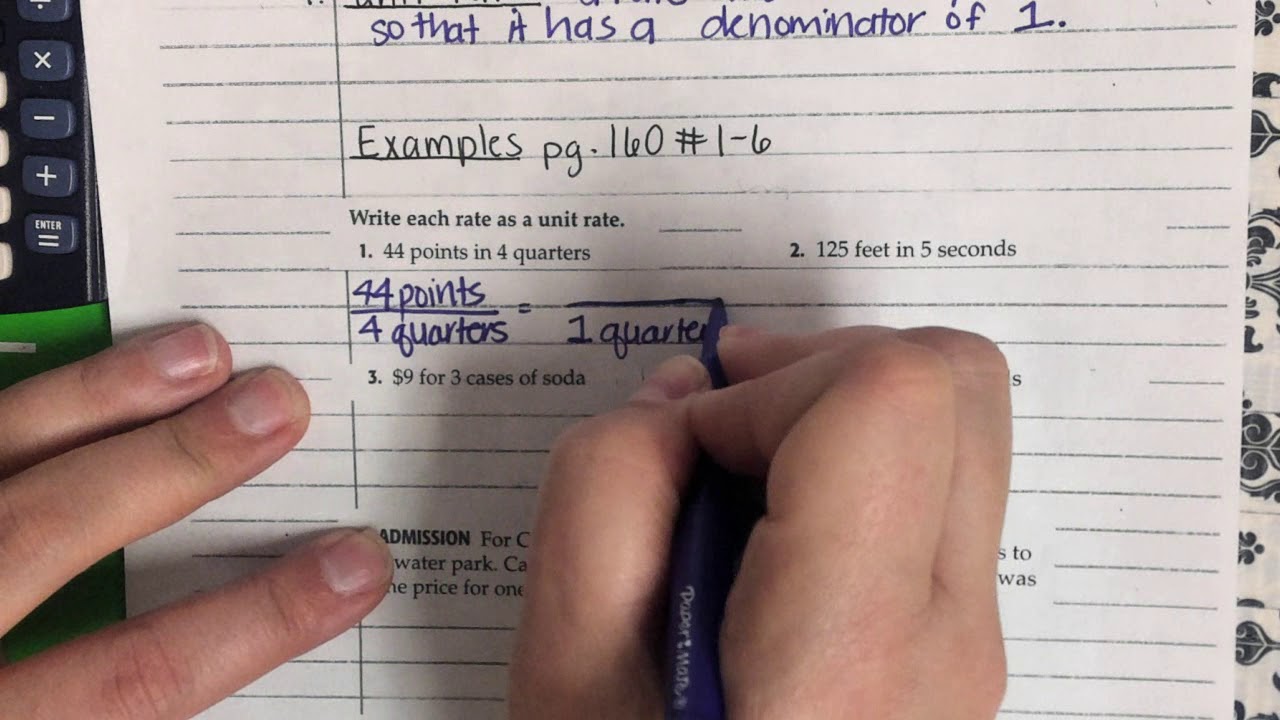 so that it has a denominator of 1.
Examples pg. 160 #1-6
Write each rate as a unit rate.
1. 44 points in 4 quarters
2. 125 feet in 5 seconds
44 points
4 quarters
=
1 quarter
3. $9 for 3 cases of soda
ADMISSION For C
water park. Ca
price for one
s to
was
ENTER
=
×
−
+
Paper Mate